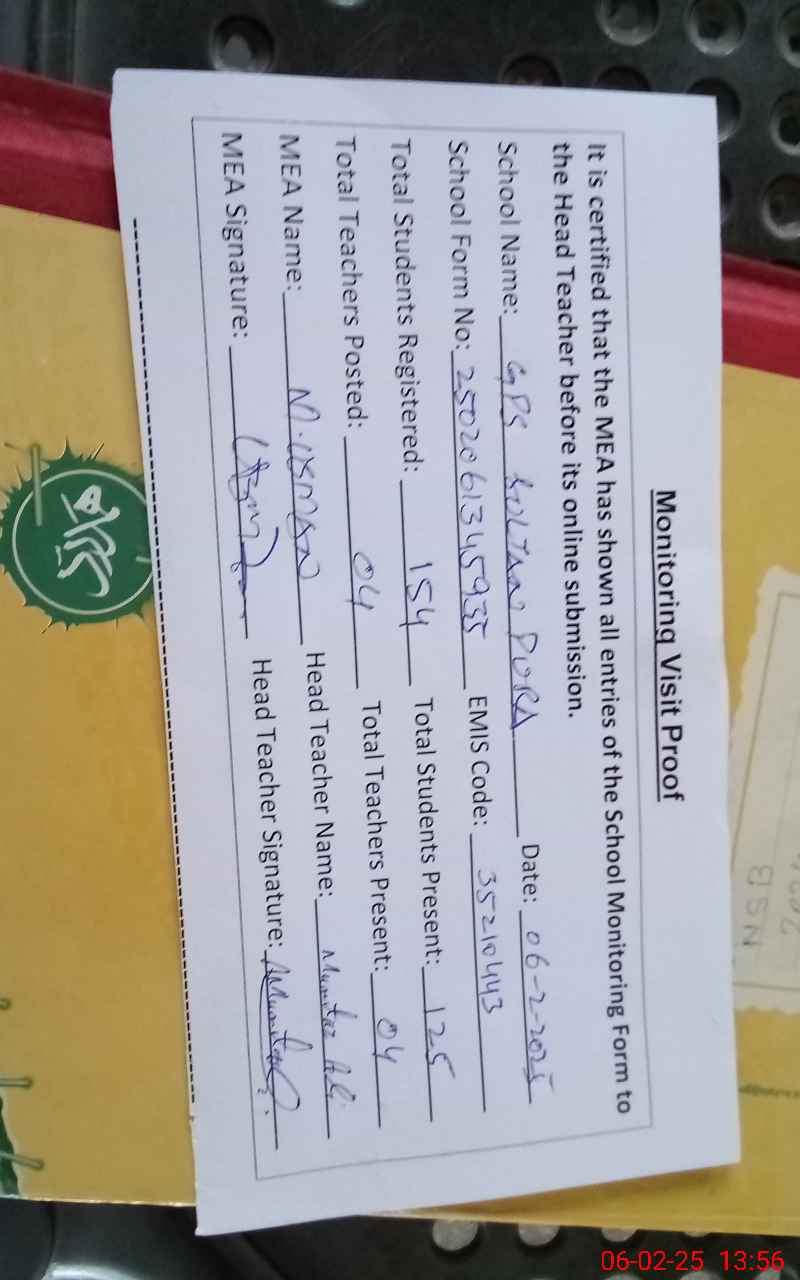 Monitoring Visit Proof
It is certified that the MEA has shown all entries of the School Monitoring Form to
the Head Teacher before its online submission.
School Name: GPS SULTAN PURA Date: 06-2-2025
School Form No: 2502061345935 EMIS Code: 35210443
Total Students Registered: 154 Total Students Present: 125
Total Teachers Posted: 04 Total Teachers Present: 04
MEA Name: M. USMAN Head Teacher Name: Mumtaz Ali
MEA Signature: Head Teacher Signature:
NSB
06-02-25 13:56